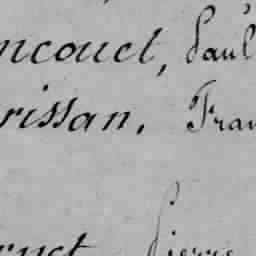 ncouct, Paul
rissan. Fran
ruct Pierre